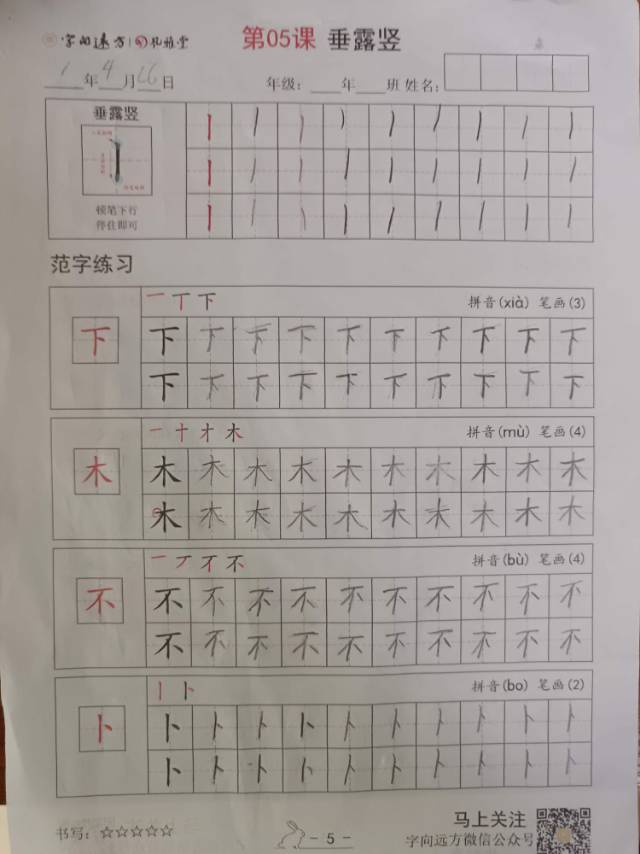 字向远方 孔雅堂
第05课 垂露竖
1年4月26日 年级：年班 姓名：
垂露竖
顿笔下行
停住即可
范字练习
一 丁 下 拼音(xià) 笔画(3)
下 下 下 下 下 下 下 下 下 下 下
下 下 下 下 下 下 下 下 下 下
一 十 才 木 拼音(mù) 笔画(4)
木 木 木 木 木 木 木 木 木 木 木
木 木 木 木 木 木 木 木 木 木
一 丆 不 不 拼音(bù) 笔画(4)
不 不 不 不 不 不 不 不 不 不 不
不 不 不 不 不 不 不 不 不 不
丨 卜 拼音(bo) 笔画(2)
卜 卜 卜 卜 卜 卜 卜 卜 卜 卜 卜
卜 卜 卜 卜 卜 卜 卜 卜 卜 卜
书写：☆☆☆☆☆
- 5 -
马上关注
字向远方微信公众号